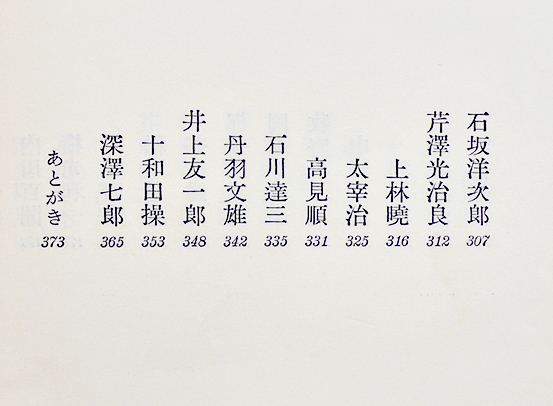 石坂洋次郎 307
芹澤光治良 312
上林曉 316
太宰治 325
高見順 331
石川達三 335
丹羽文雄 342
井上友一郎 348
十和田操 353
深澤七郎 365
あとがき 373